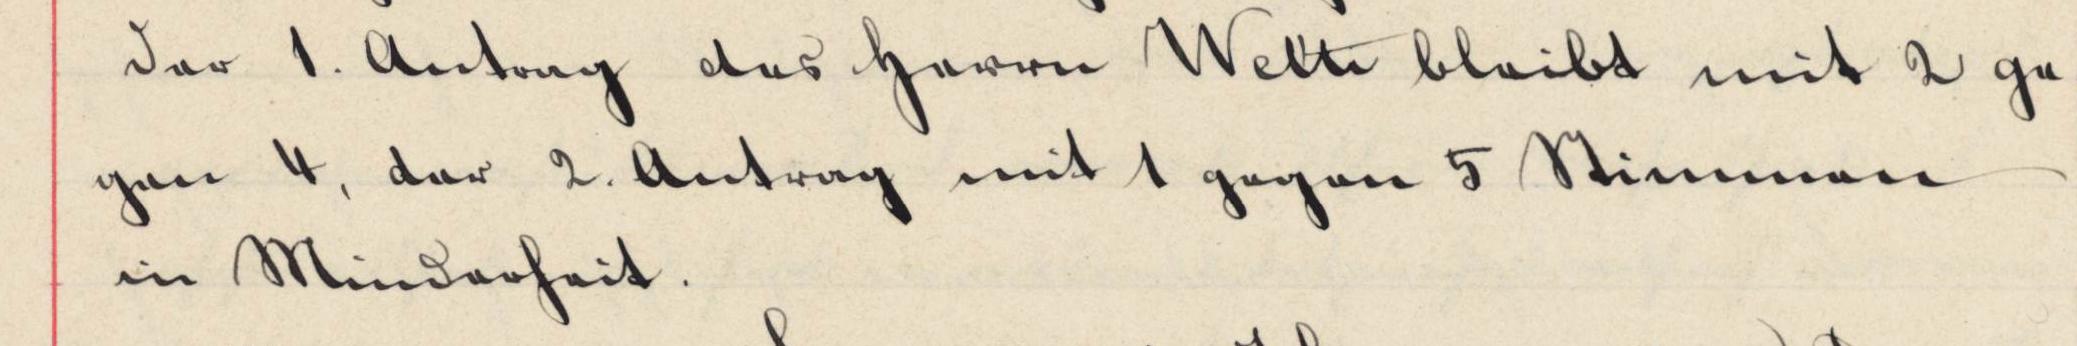 Der 1. Antrag des Herrn Welti bleibt mit 2 ge
gen 4, der 2. Antrag mit 1 gegen 5 Stimmen
in Minderheit.